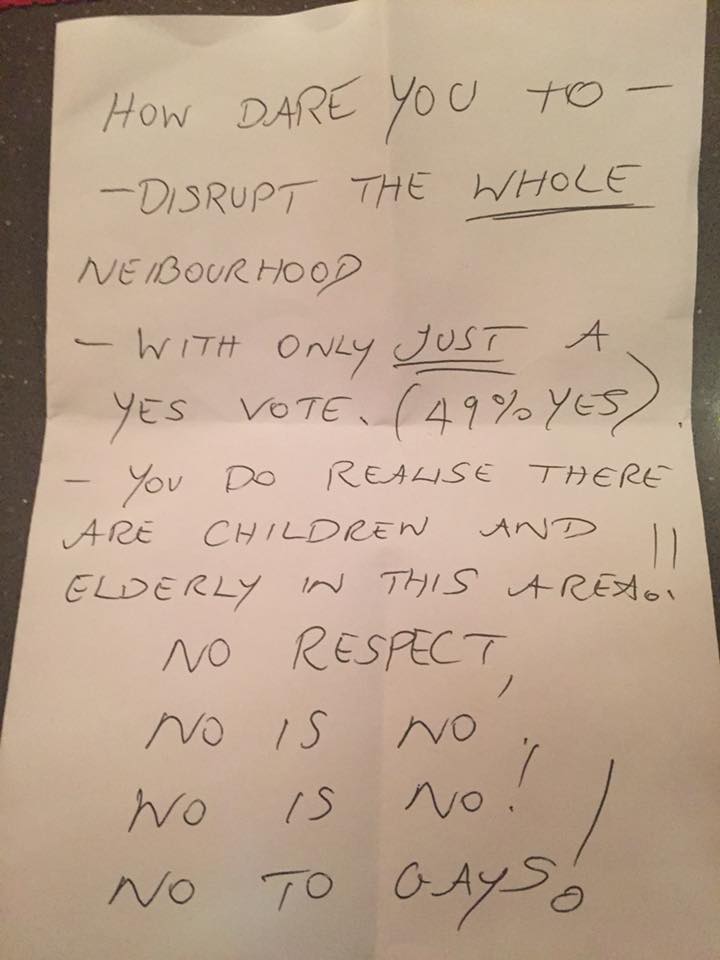 HOW DARE YOU TO —
— DISRUPT THE WHOLE
NEIBOURHOOD
— WITH ONLY JUST A
YES VOTE. (49% YES).
— YOU DO REALISE THERE
ARE CHILDREN AND
ELDERLY IN THIS AREA!!
NO RESPECT,
NO IS NO!
NO IS NO!
NO TO GAYS!